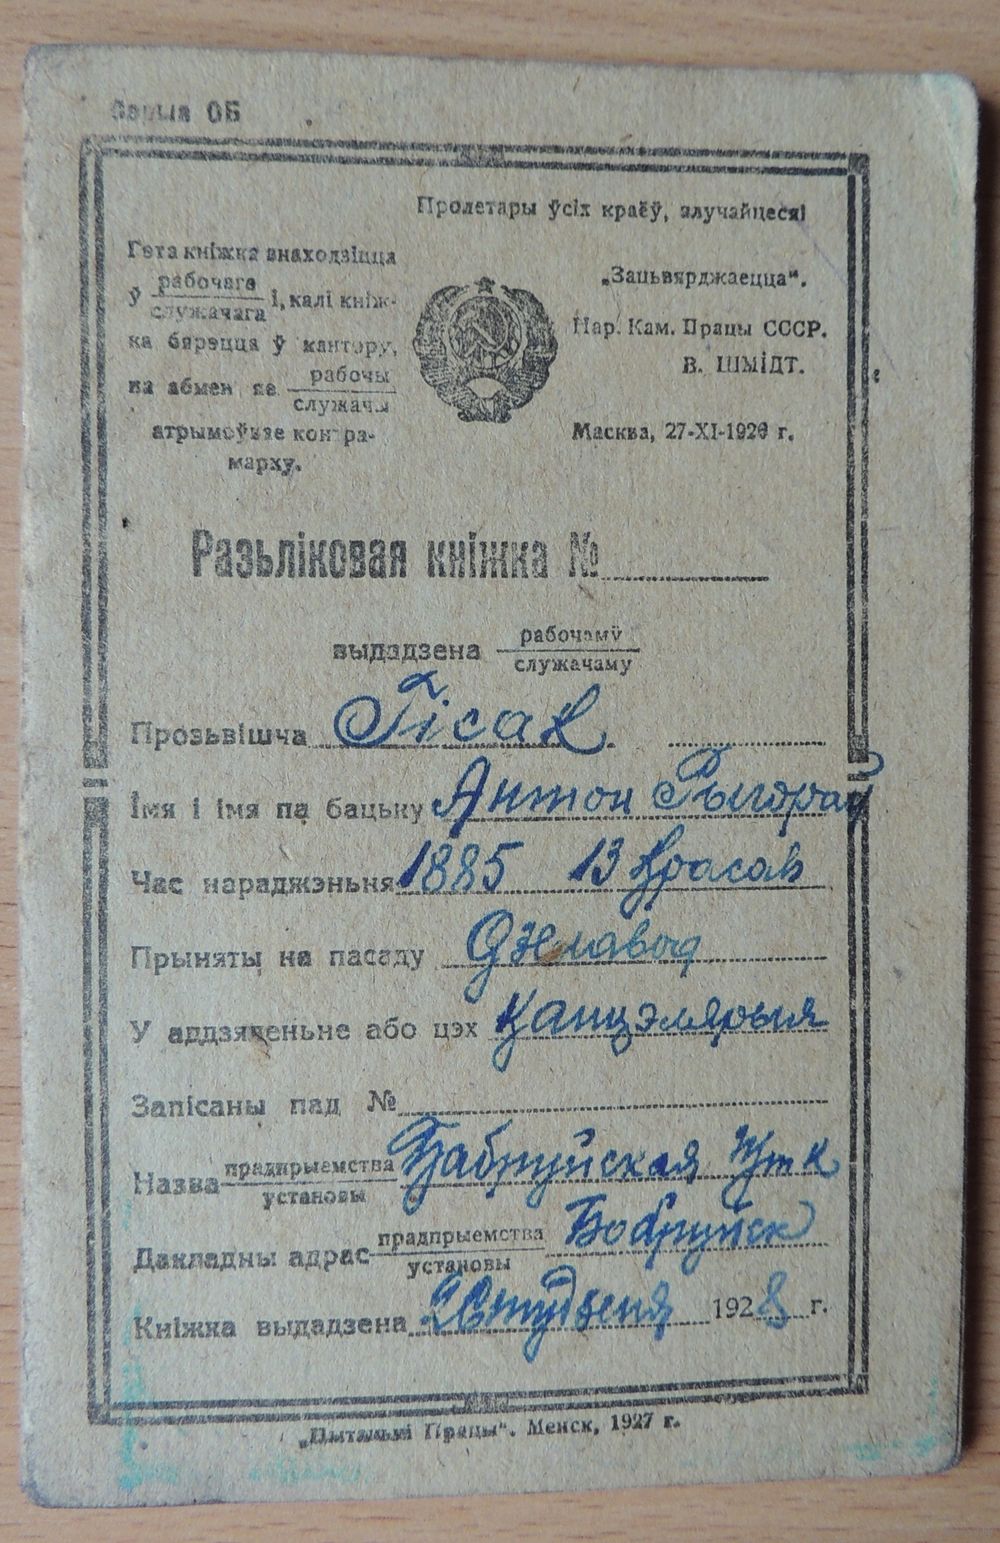 Сэрыя ОБ
Пролетары ўсіх краёў, злучайцеся!
Гэта кніжка знаходзіцца
ў рабочага
служачага і, калі кніж-
ка бярэцца ў кантору,
на абмен яе рабочы
служачы
атрымоўвае контра-
марку.
„Зацьвярджаецца“.
Нар. Кам. Працы СССР.
В. ШМІДТ.
Масква, 27-XI-1926 г.
Разьліковая кніжка №
выдадзена рабочаму
служачаму
Прозьвішча Гісак
Імя і імя па бацьку Антон Рыгорав
Час нараджэньня 1885 13 Красав
Прыняты на пасаду Дзелавод
У аддзяленьне або цэх Канцэлярыя
Запісаны пад №
Назва прадпрыемства
установы Бабруйская
Дакладны адрас прадпрыемства
установы Бобруйск
Кніжка выдадзена Студзеня 1928 г.
„Пытаньні Працы“. Менск, 1927 г.